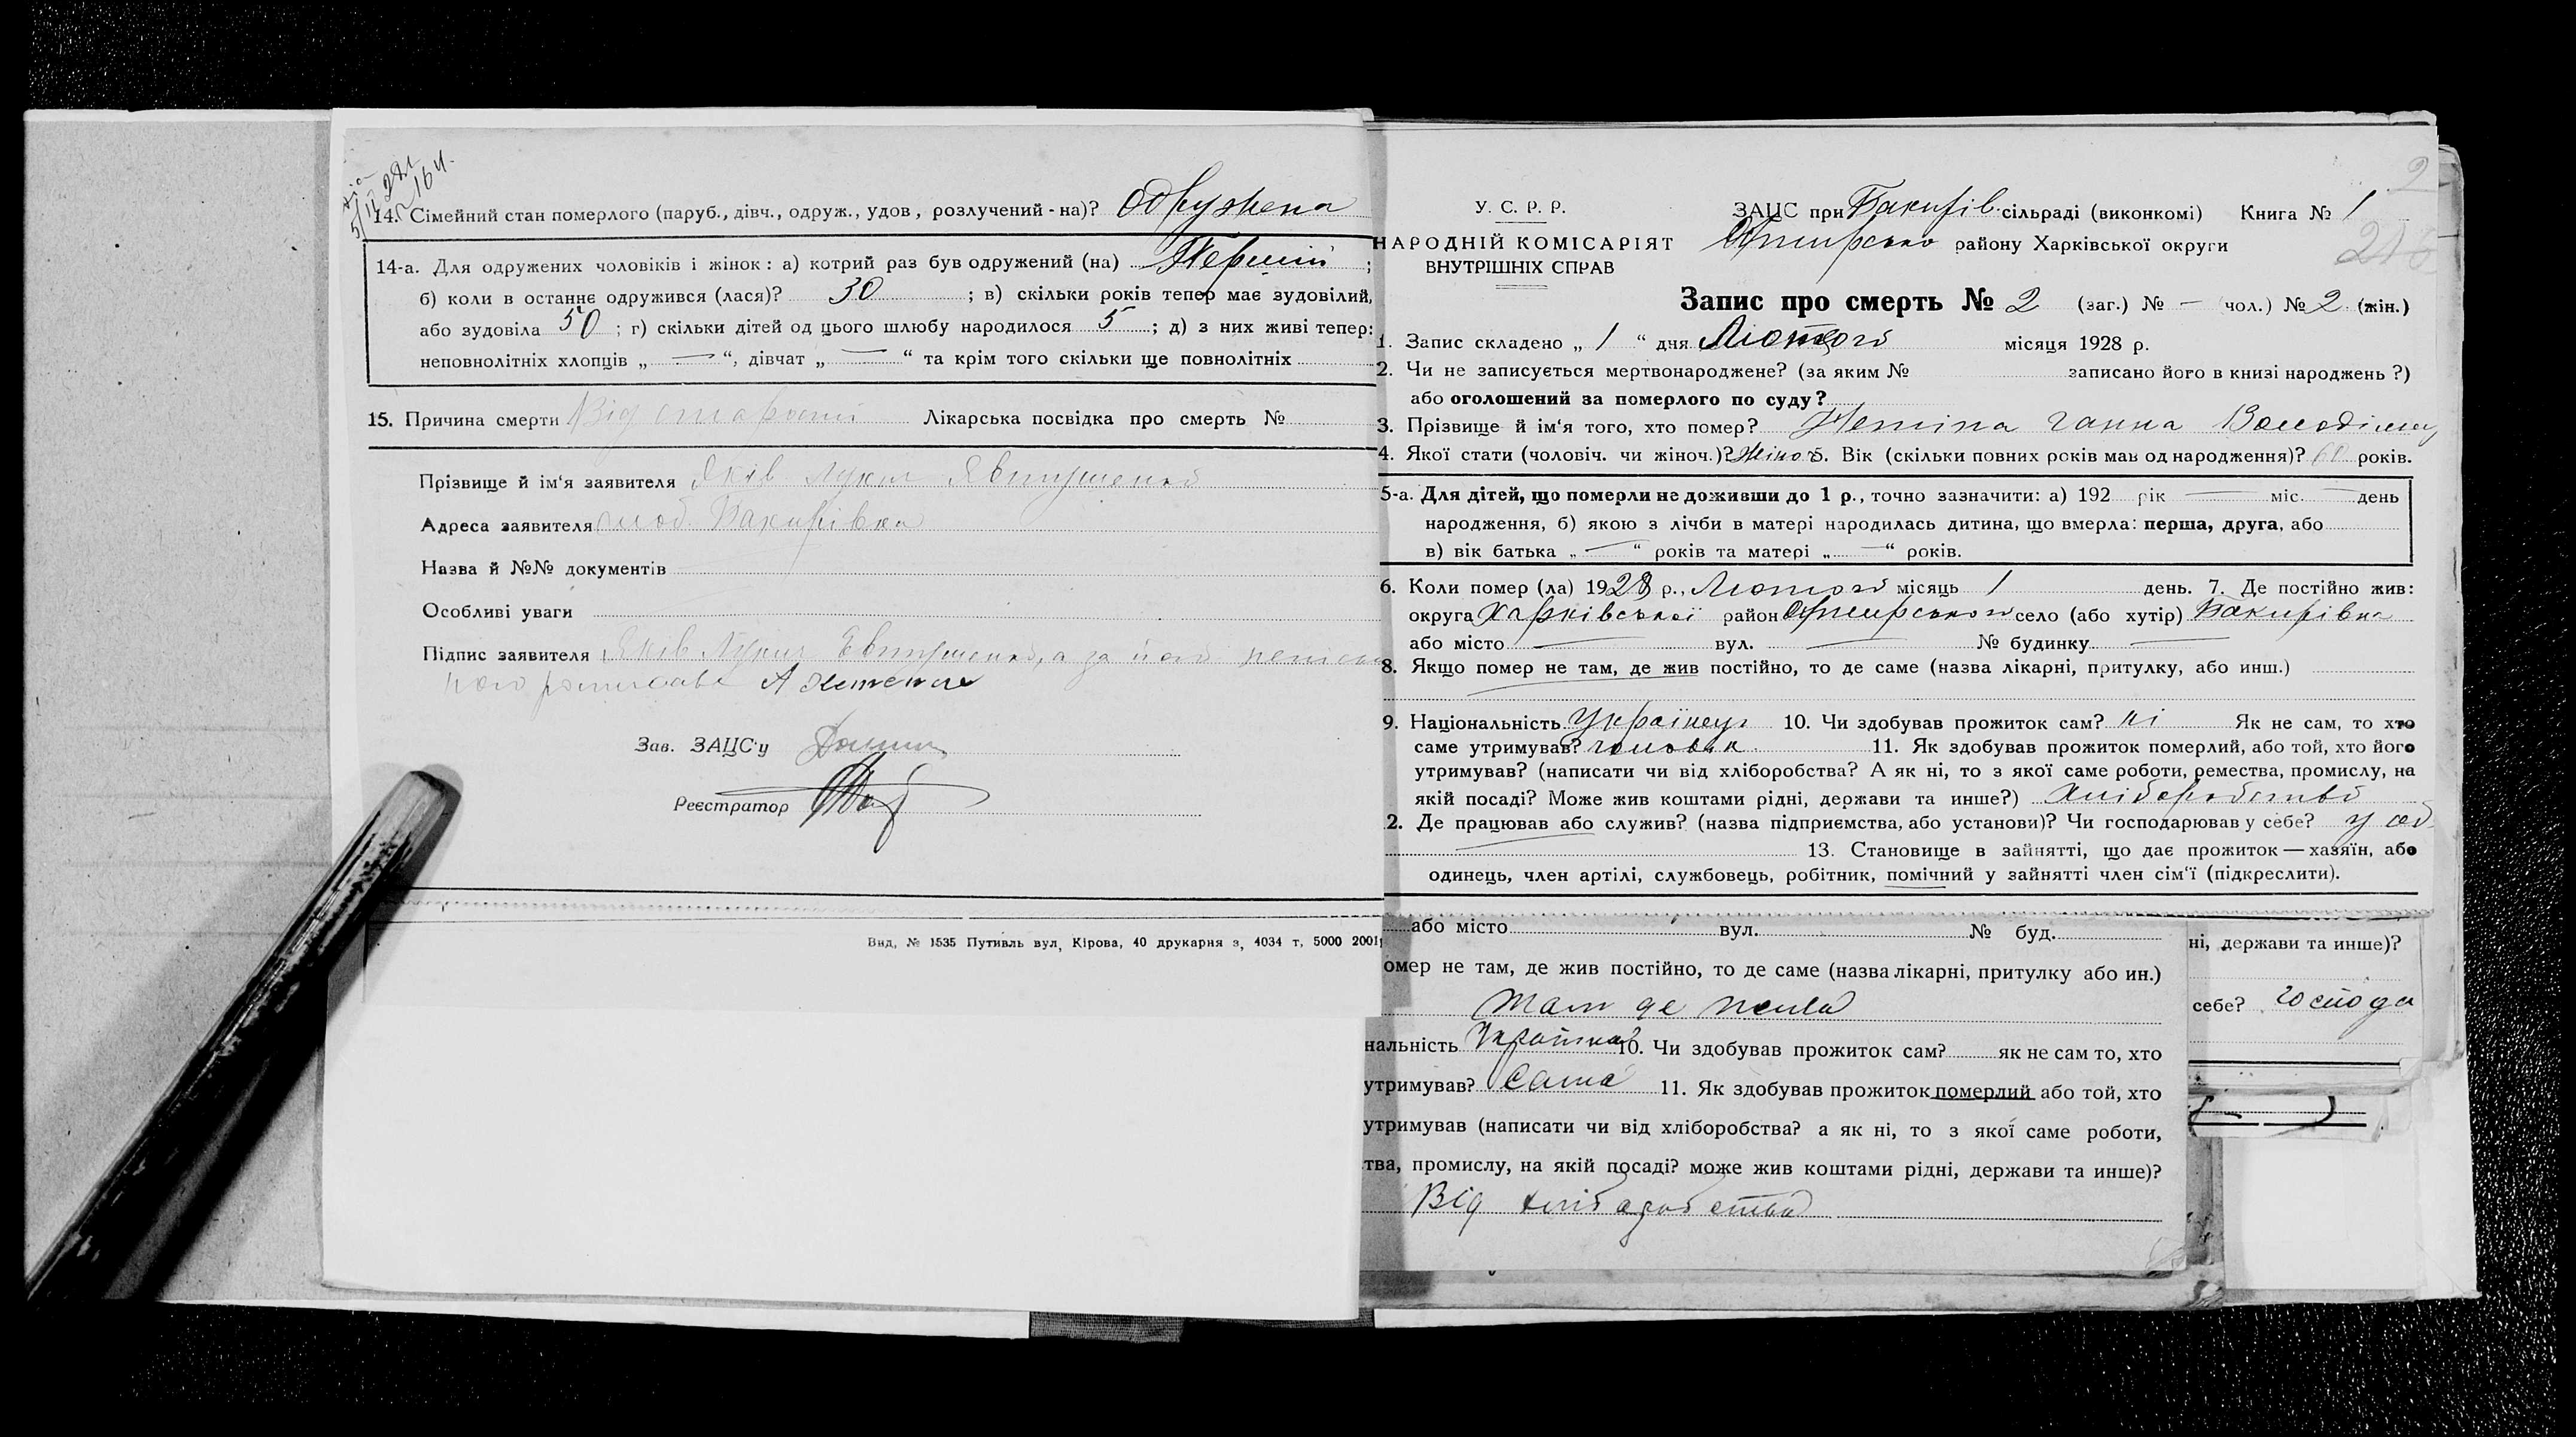 14. Сімейний стан померлого (паруб., дівч., одруж., удов., розлучений-на)? одружена
14-а. Для одружених чоловіків і жінок: а) котрий раз був одружений (на) Первий;
б) коли в останнє одружився (лася)? 30; в) скільки років тепер має зудовілий,
або зудовіла 50; г) скільки дітей од цього шлюбу народилося 5; д) з них живі тепер:
неповнолітніх хлопців „—“, дівчат „—“ та крім того скільки ще повнолітніх
15. Причина смерти Від старости Лікарська посвідка про смерть №
Прізвище й ім'я заявителя Яків Лукич Явтушенко
Адреса заявителя Бакирівка
Назва й №№ документів
Особливі уваги
Підпис заявителя Яків Лукич Євтушенко, а за його
Зав. ЗАЦС'у
Реєстратор
Вид. № 1535 Путивль вул. Кірова, 40 друкарня з, 4034 т, 5000 2001
2
У. С. Р. Р.
НАРОДНІЙ КОМІСАРІЯТ
ВНУТРІШНІХ СПРАВ
ЗАЦС при Бакирів. сільраді (виконкомі) Книга № 1
району Харківської округи
Запис про смерть № 2 (заг.) № — (чол.) № 2 (жін.)
1. Запис складено „1“ дня Лютого місяця 1928 р.
2. Чи не записується мертвонароджене? (за яким № записано його в книзі народжень?)
або оголошений за померлого по суду?
3. Прізвище й ім'я того, хто помер? Ганна
4. Якої стати (чоловіч. чи жіноч.)? Жіноч 5. Вік (скільки повних років мав од народження)? 60 років.
5-а. Для дітей, що померли не доживши до 1 р., точно зазначити: а) 192 рік — міс. — день
народження, б) якою з лічби в матері народилась дитина, що вмерла: перша, друга, або
в) вік батька „—“ років та матері „—“ років.
6. Коли помер (ла) 1928 р., Лютого місяць 1 день. 7. Де постійно жив:
округа Харківської район село (або хутір) Бакирівка
або місто — вул. — № будинку —
8. Якщо помер не там, де жив постійно, то де саме (назва лікарні, притулку, або инш.)
9. Національність Українец 10. Чи здобував прожиток сам? ні Як не сам, то хто
саме утримував? чоловік 11. Як здобував прожиток померлий, або той, хто його
утримував? (написати чи від хліборобства? А як ні, то з якої саме роботи, ремества, промислу, на
якій посаді? Може жив коштами рідні, держави та инше?) Хліборобство
2. Де працював або служив? (назва підприємства, або установи)? Чи господарював у себе? у
13. Становище в зайнятті, що дає прожиток — хазяїн, або
одинець, член артілі, службовець, робітник, помічний у зайнятті член сім'ї (підкреслити).
або місто вул. № буд.
омер не там, де жив постійно, то де саме (назва лікарні, притулку або ин.)
там де жила
нальність Українка 10. Чи здобував прожиток сам? як не сам то, хто
утримував? Сама 11. Як здобував прожиток померлий або той, хто
утримував (написати чи від хліборобства? а як ні, то з якої саме роботи,
тва, промислу, на якій посаді? може жив коштами рідні, держави та инше)?
Від хліборобства
ні, держави та инше)?
себе? господа